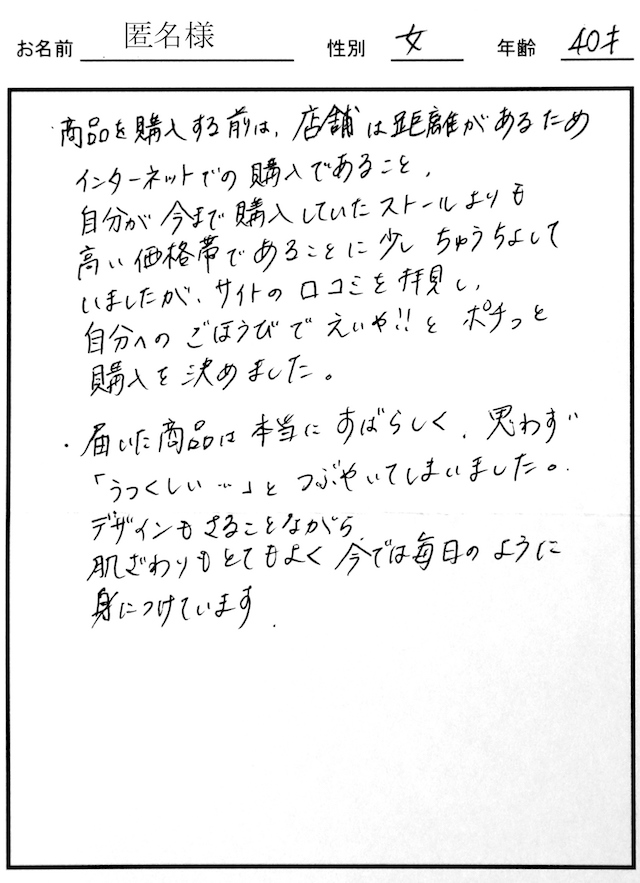 お名前 匿名様 性別 女 年齢 40才
・商品を購入する前は、店舗は距離があるため
インターネットでの購入であること、
自分が今まで購入していたストールよりも
高い価格帯であることに少しちゅうちょして
いましたが、サイトの口コミを拝見し、
自分へのごほうびでえいや!!とポチっと
購入を決めました。
・届いた商品は本当にすばらしく、思わず
「うつくしい…」とつぶやいてしまいました。
デザインもさることながら
肌ざわりもとてもよく今では毎日のように
身につけています.